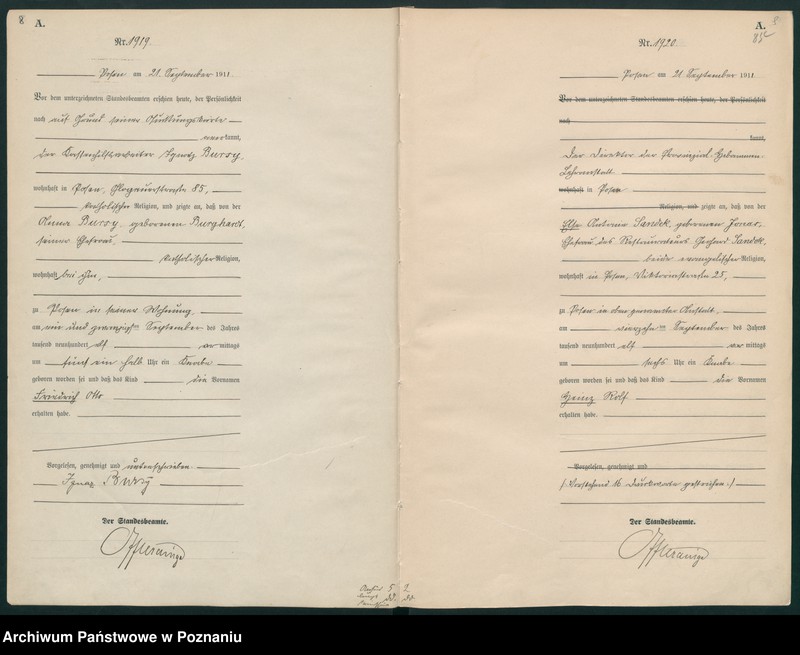 8
A.
Nr. 1919.
Posen am 21. September 1911.
Vor dem unterzeichneten Standesbeamten erschien heute, der Persönlichkeit
nach auf Grund seiner
kannt,
der Ignatz Bursy,
wohnhaft in Posen, Glogauerstraße 85,
katholischer Religion, und zeigte an, daß von der
Anna Bursy geborenen Burghardt,
seiner Ehefrau,
katholischer Religion,
wohnhaft bei ihm,
zu Posen in seiner Wohnung,
am ein und zwanzigsten September des Jahres
tausend neunhundert elf vormittags
um fünf ein halb Uhr ein Knabe
geboren worden sei und daß das Kind die Vornamen
Friedrich Otto
erhalten habe.
Vorgelesen, genehmigt und unterschrieben.
Ignaz Bursy
Der Standesbeamte.
A.
85
Nr. 1920.
Posen am 21. September 1911.
Vor dem unterzeichneten Standesbeamten erschien heute, der Persönlichkeit
nach
kannt,
Der Direktor der Provinzial-Hebammen-
Lehranstalt
wohnhaft in Posen
Religion, und zeigte an, daß von der
Else Antonie Sandek, geborenen
Ehefrau des Restaurateurs Gerhard Sandek,
beide evangelischer Religion,
wohnhaft in Posen, Viktoriastraße 25,
zu Posen in der genannten Anstalt,
am vierzehnten September des Jahres
tausend neunhundert elf vormittags
um sechs Uhr ein Knabe
geboren worden sei und daß das Kind die Vornamen
Heinz Rolf
erhalten habe.
Vorgelesen, genehmigt und
(Vorstehend 16 Druckworte gestrichen.)
Der Standesbeamte.
Archiwum Państwowe w Poznaniu